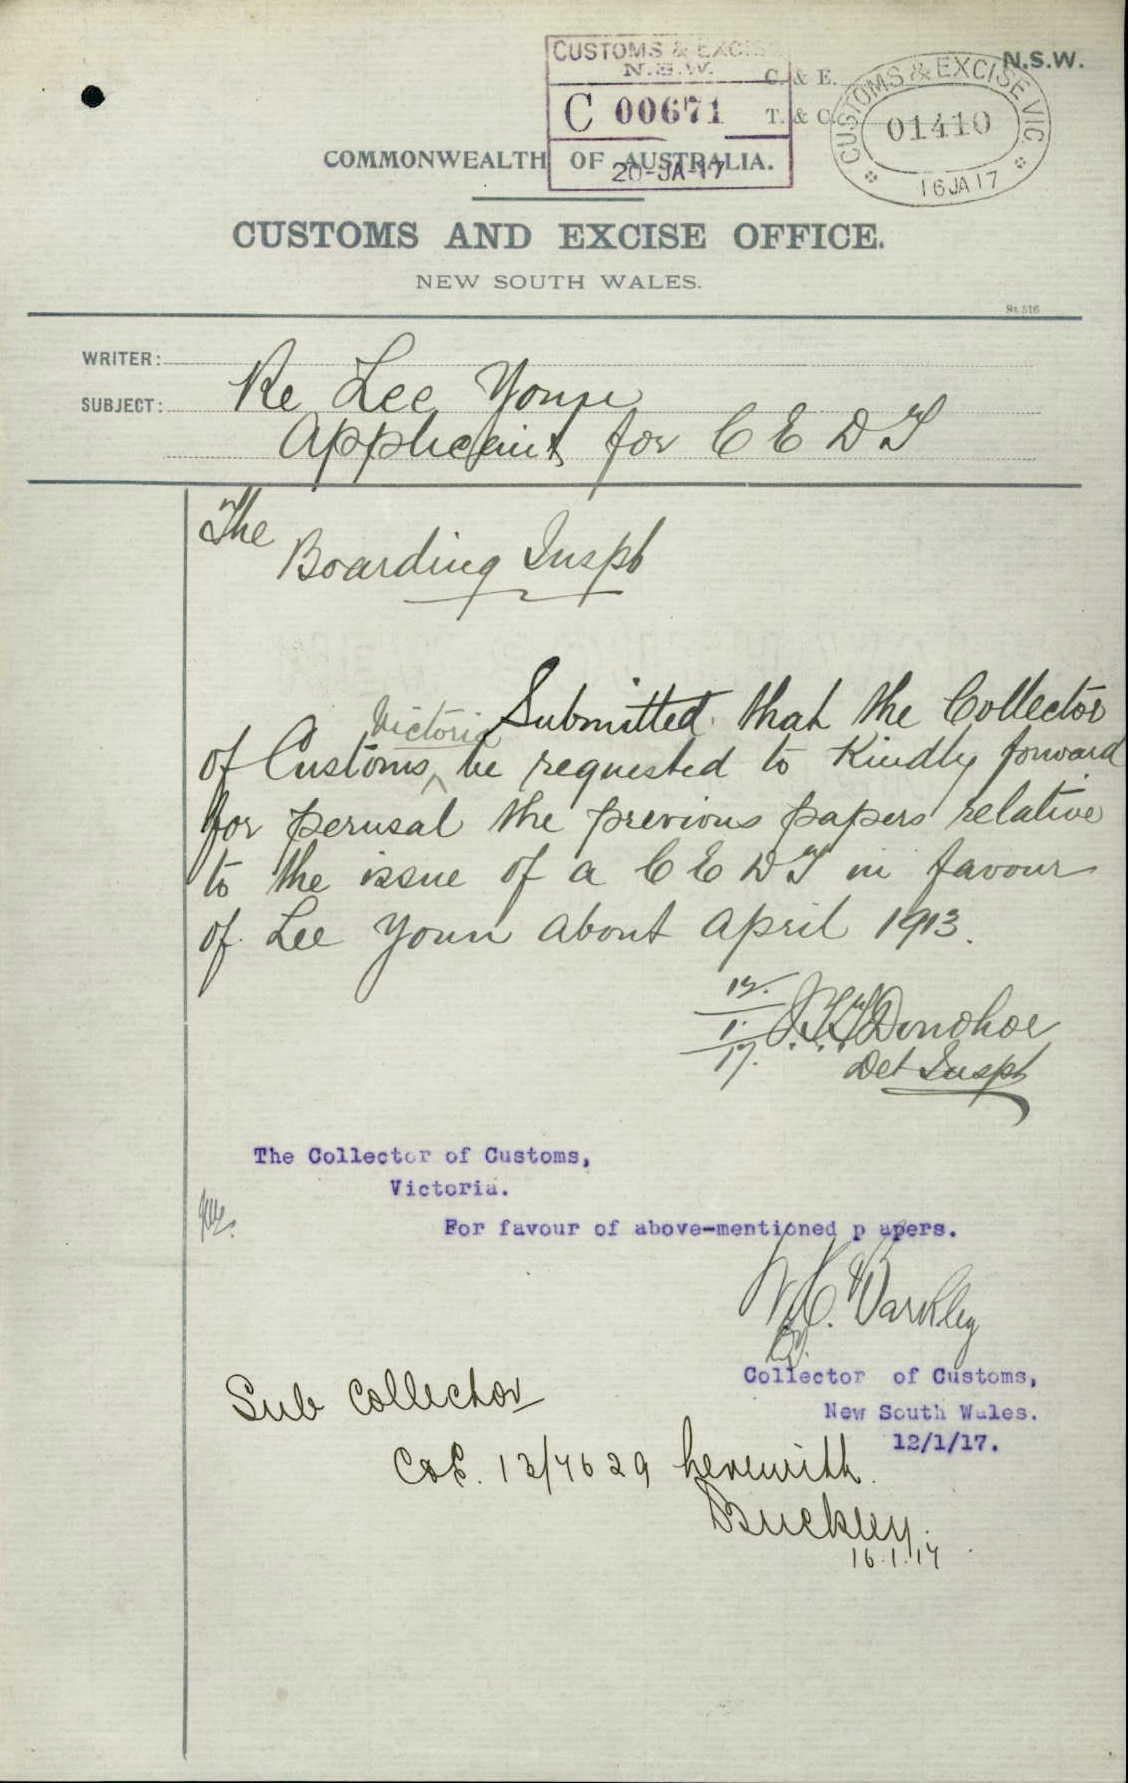 N.S.W.
CUSTOMS & EXCISE
N.S.W.
C 00671
20-JA-17
C. & E.
T. & C.
CUSTOMS & EXCISE VIC
01410
16 JA 17
COMMONWEALTH OF AUSTRALIA.
CUSTOMS AND EXCISE OFFICE.
NEW SOUTH WALES.
St. 516
WRITER:
SUBJECT: Re Lee Youn
Applicant for C E D T
The
Boarding Inspt
Submitted that the Collector
of Customs, Victoria be requested to kindly forward
for perusal the previous papers relative
to the issue of a C E D T in favour
of Lee Youn about April 1913.
12.
1.
17.
J.T.T. Donohoe
Det Inspt
The Collector of Customs,
Victoria.
For favour of above-mentioned p apers.
W.H. Barkley
Collector of Customs,
New South Wales.
12/1/17.
Sub Collector
C&E. 13/7629 herewith.
Buckley.
16.1.17